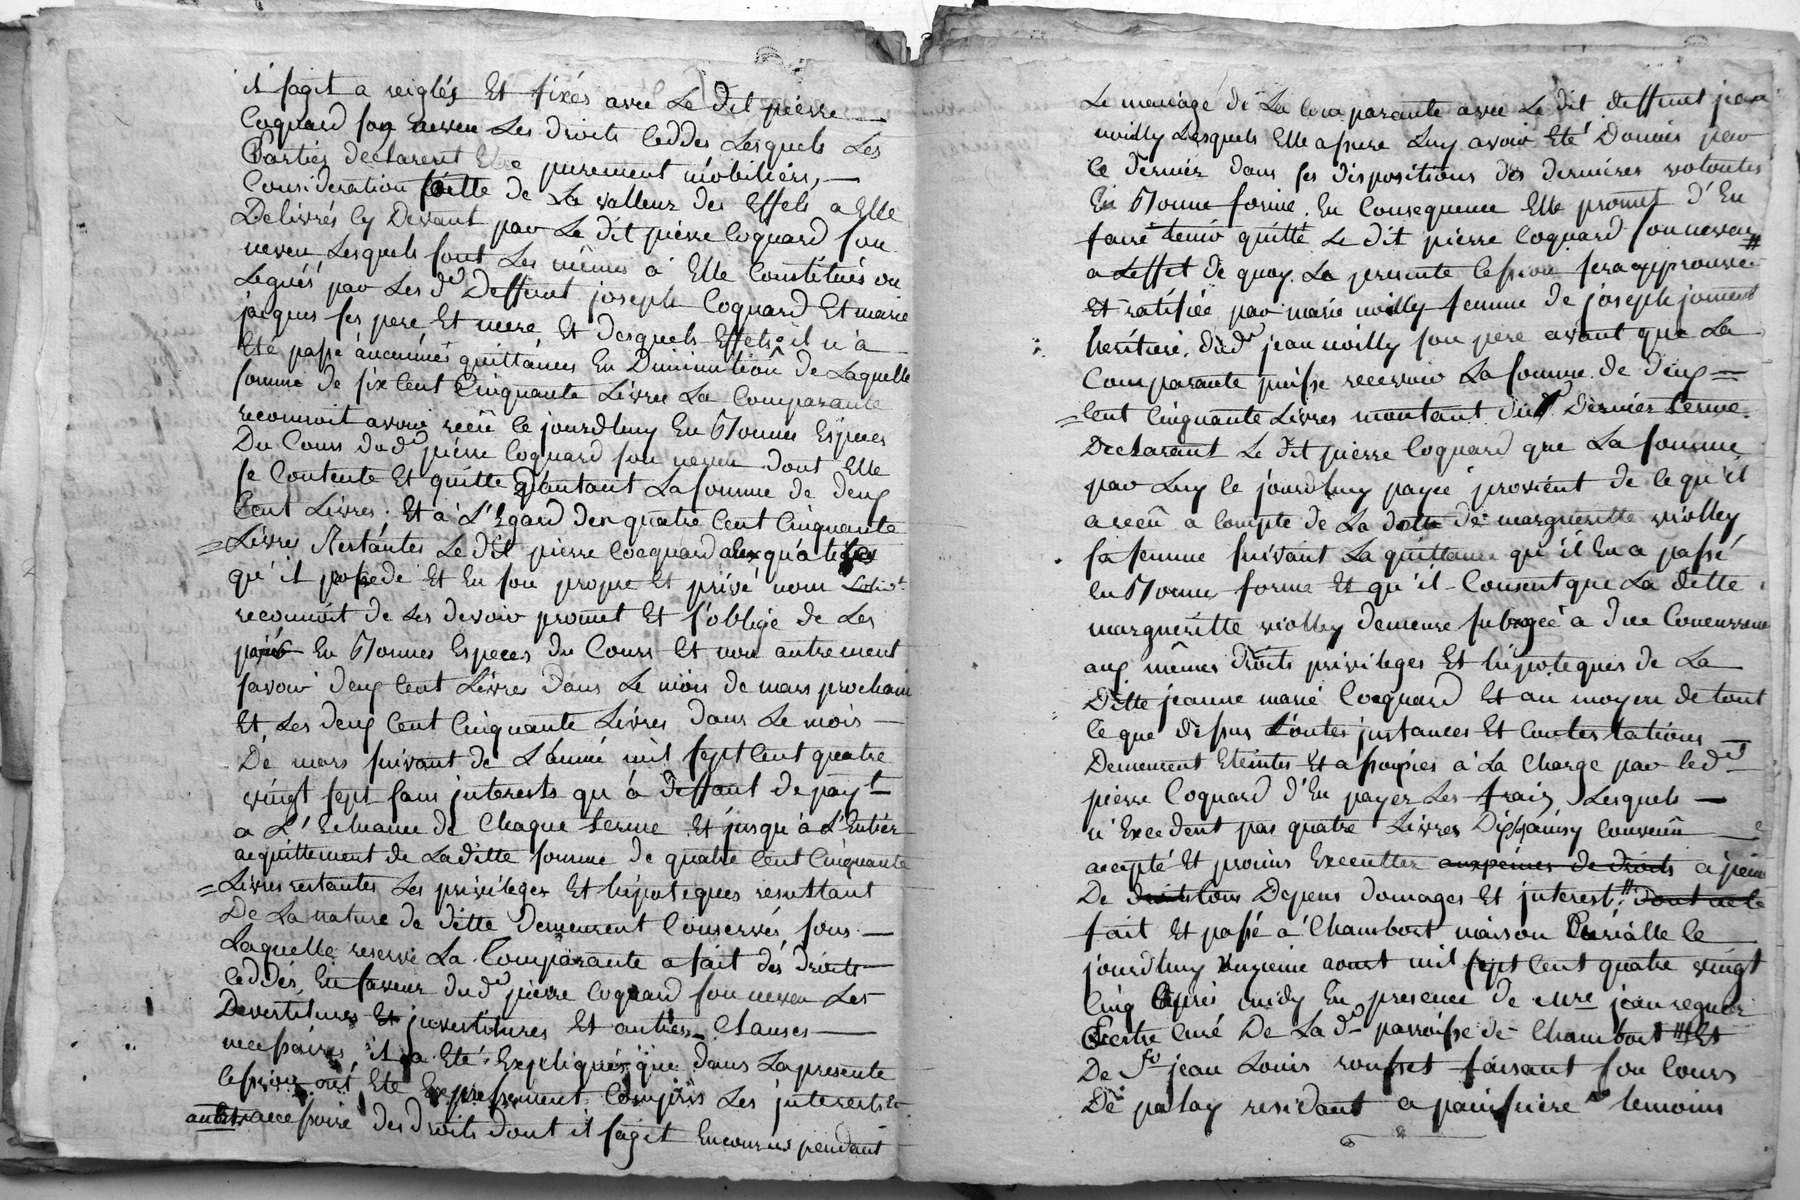 il sagit a reiglés Et fixés avec Le dit pierre
Coquard son neveu Les droits Ceddés Lesquels Les
Parties declarent Etre purement mobiliers,
Consideration faitte de La valleur des Effets a Elle
Delivrés Cy Devant par Le dit pierre Coquard son
neveu Lesquels sont Les mêmes a Elle Constitués ou
Legués par Les d. Deffunt joseph Coquard Et marie
jacques ses pere Et mere, Et desquels Effets il n'a
Eté passé aucunnes quittances En Diminution De Laquelle
somme de six Cent Cinquante Livres La Comparante
reconnoit avoir recû Ce jourdhuy En Bonnes Especes
Du Cours dud pierre Coquard son neveu dont Elle
se Contente Et quitte D'autant La somme de deux
Cent Livres. Et a L'Egard des quatre Cent Cinquante
Livres Restantes Le dit pierre Cocquard
qu'il possede Et En son propre Et privé nom
reconnoit de Les devoir promet Et s'oblige de Les
En Bonnes Especes du Cours Et non autrement
savoir deux Cent Livres Dans Le mois de mars prochain
Et Les deux Cent Cinquante Livres dans Le mois
De mars suivant de L'année mil sept Cent quatre
vingt sept sans interests qu'a Deffaut de payt
a L'Echeance de Chaque terme Et jusqu'a L'Entier
acquittement de Laditte somme de quatre Cent Cinquante
Livres restantes Les privileges Et hipoteques resultant
De La nature de ditte demeurent Conservés sous
Laquelle reserve La Comparante a fait des droits
Ceddés, En faveur dud pierre Coquard son neveu Les
Devestitures Et investitures Et autres Clauses
necessaires il a Eté Expliqué que dans La presente
Cession ont Eté Expressement Compris Les interests Et
accessoire des droits dont il sagit Encourus pendant
Le mariage de La Comparante avec Le dit deffunt jean
noilly Lesquels Elle assure Luy avoir Eté Donnés par
Ce dernier dans ses dispositions des dernieres volontes
En Bonne forme. En Consequence Elle promet d'En
faire tenir quitte Le dit pierre Coquard son neveu #
a L'effet de quoy La presente Cession sera approuvée
Et ratifiée par marie noilly femme de joseph joment
heritiere dud jean noilly son pere avant que La
Comparante puisse recevoir La somme de deux
Cent Cinquante Livres montant dud. Dernier terme.
Declarant Le dit pierre Coquard que La somme
par Luy Ce jourdhuy payée provient de Ce qu'il
a recû a Compte de La dotte de margueritte violley
sa femme suivant La quittance qu'il En a passé
En Bonne forme Et qu'il Consent que La ditte
margueritte violley demeure subrogée a due Concurrence
aux mêmes droits privileges Et hipoteques de La
Ditte jeanne marie Cocquard Et au moyen de tout
Ce que dessus toutes instances Et Contestations
Demeurent Eteintes Et assoupies a La Charge par led
pierre Coquard d'En payer Les frais Lesquels
n'Excedent pas quatre Livres Dix sols ainsy Convenû
accepté Et promis Executter aux peines de droits a peine
De droits tous Depens domages Et interest. # dont acte
fait Et passé a Chambost maison Curialle Ce
jourdhuy onzieme aoust mil sept Cent quatre vingt
Cinq apres midy En presence de mre jean
Prestre Curé De La d parroisse de Chambost # Et
De Sr jean Louis rousset faisant son Cours
De palay residant a panissiere temoins